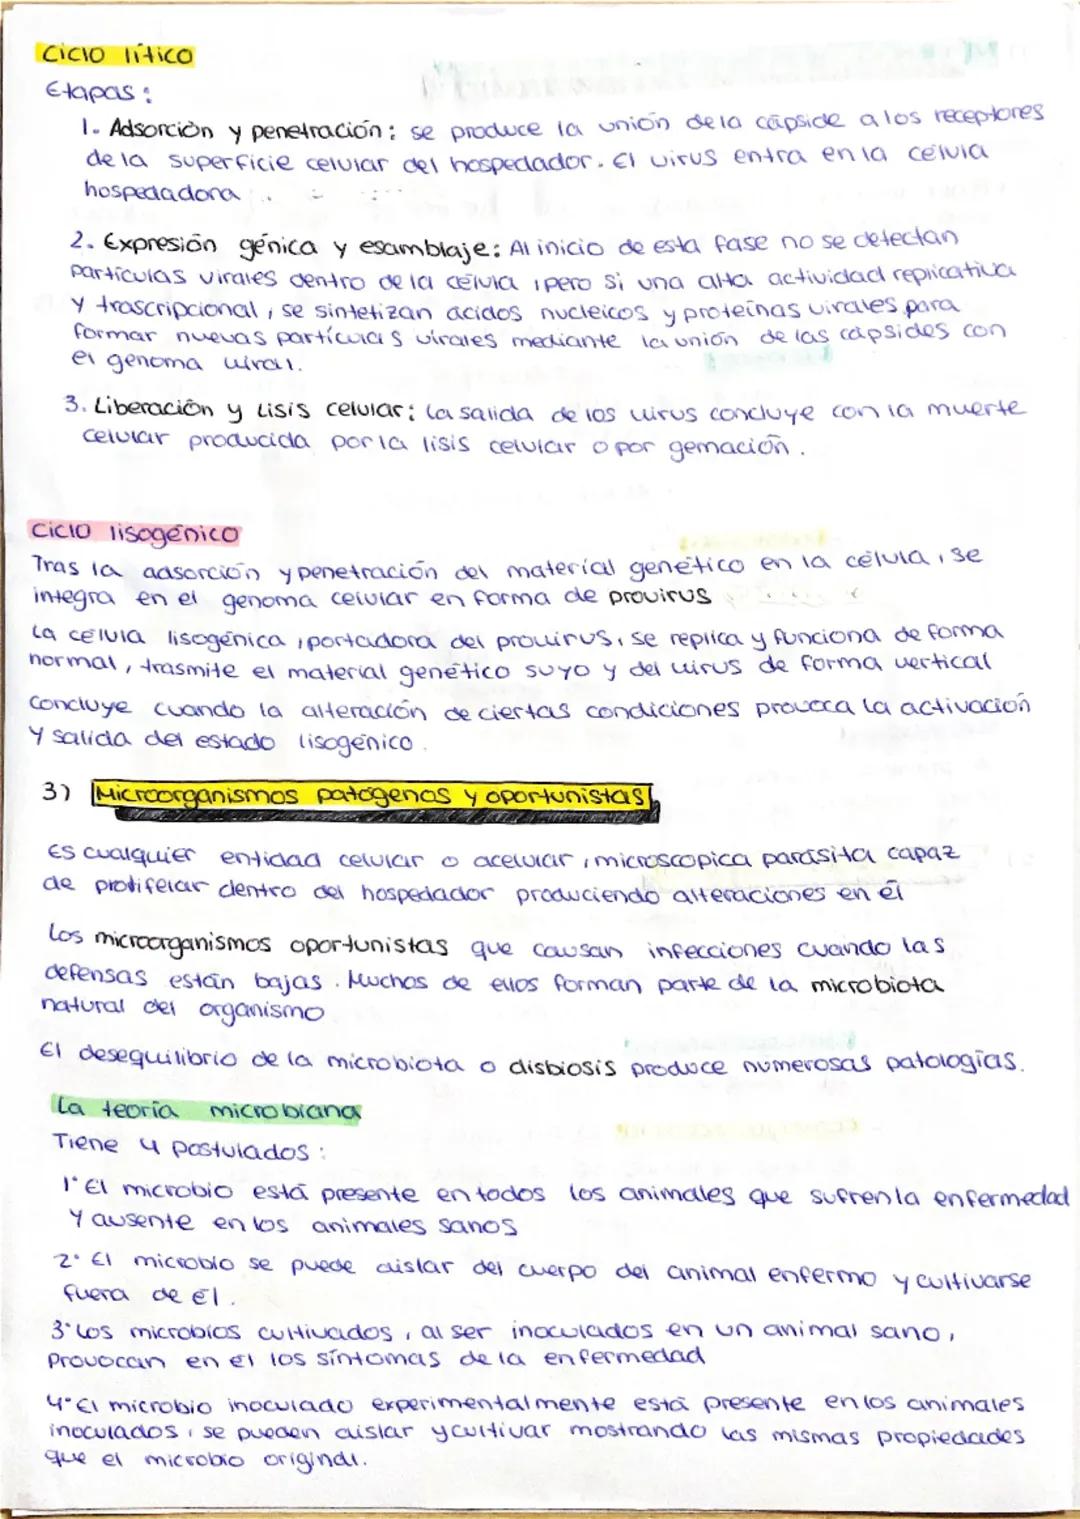 Ciclo lítico
Etapas:
1. Adsorción y penetración: se produce la unión de la cápside a los receptores
de la superficie celular del hospedador. El virus entra en la célula
hospedadora
2. Expresión génica y esamblaje: Al inicio de esta fase no se detectan
partículas virales dentro de la célula, pero si una alta actividad replicativa
y trascripcional, se sintetizan ácidos nucleicos y proteínas virales para
formar nuevas partículas virales mediante la unión de las cápsides con
el genoma viral.
3. Liberación y Lisis celular: La salida de los virus concluye con la muerte
celular producida por la lisis celular o por gemación.
Ciclo lisogénico
Tras la adsorción y penetración del material genético en la célula, se
integra en el genoma celular en forma de provirus
La célula lisogénica, portadora del provirus, se replica y funciona de forma
normal, trasmite el material genético suyo y del virus de forma vertical
Concluye cuando la alteración de ciertas condiciones provoca la activación
y salida del estado lisogénico.
3) Microorganismos patógenos y oportunistas
Es cualquier entidad celular o acelular, microscopica parásita capaz
de prolifelar dentro del hospedador produciendo alteraciones en él
Los microorganismos oportunistas que causan infecciones cuando las
defensas están bajas. Muchos de ellos forman parte de la microbiota
natural del organismo
El desequilibrio de la microbiota o disbiosis produce númerosas patologías.
La teoría microbiana
Tiene 4 postulados:
1· El microbio está presente en todos los animales que sufren la enfermedad
y ausente en los animales sanos
2· El microbio se puede aislar del cuerpo del animal enfermo y cultivarse
fuera de él.
3· Los microbios cultivados, al ser inoculados en un animal sano,
provocan en él los síntomas de la enfermedad
4· El microbio inoculado experimentalmente está presente en los animales
inoculados, se pueden aislar y cultivar mostrando las mismas propiedades
que el microbio original.